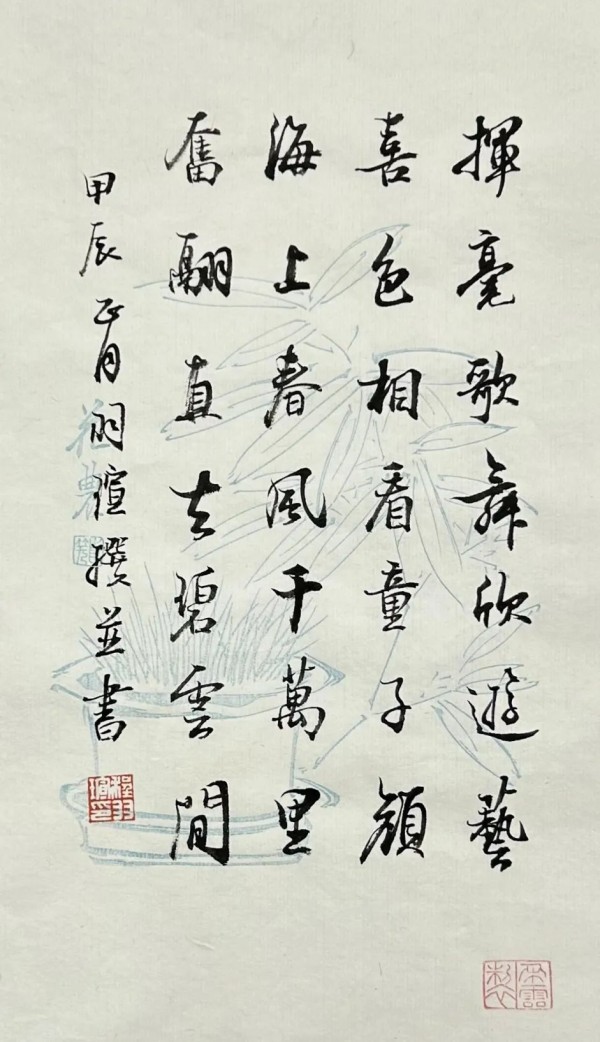 揮毫歌舞欣遊藝
喜色相看童子顏
海上春風千萬里
奮翮直去碧雲間
甲辰正月羽瑄撰並書
程羽瑄印